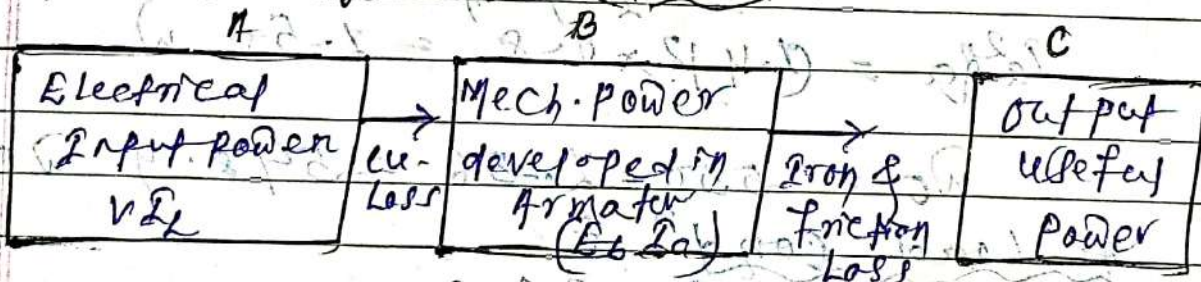 A B C
Electrical
Input power
VI_L
Cu-
Loss
Mech. Power
developed in
Armatur
(Eb Ia)
Iron &
friction
Loss
output
useful
Power